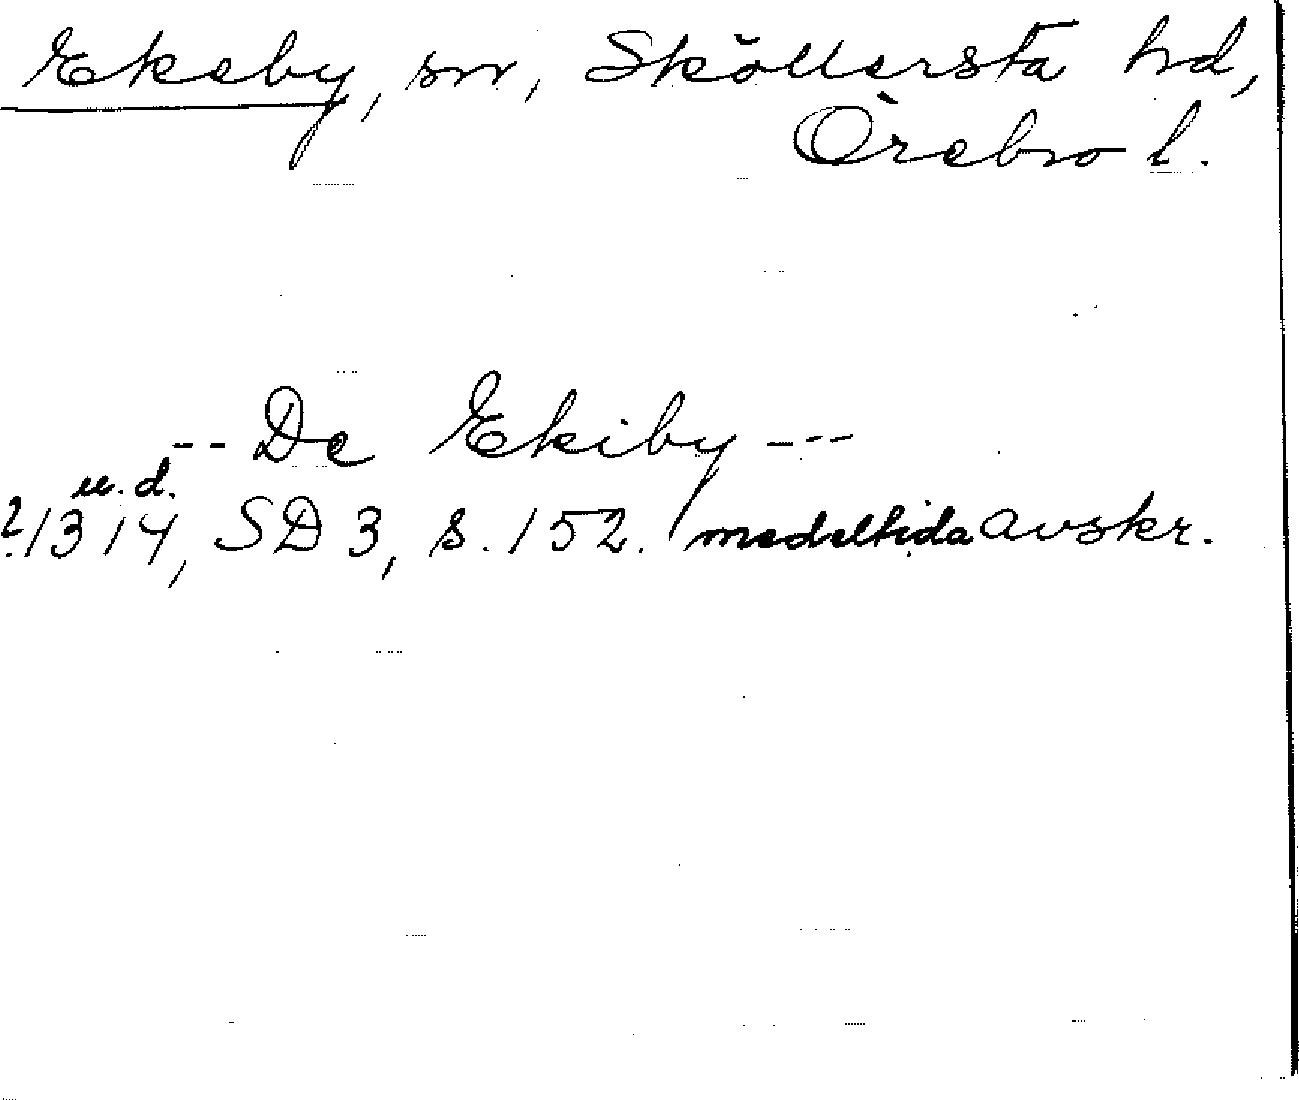 Ekeby, sn, Sköllersta hd,
Örebro l.
-- De Ekiby ---
u. d.
?1314, SD 3, s. 152. medeltida avskr.